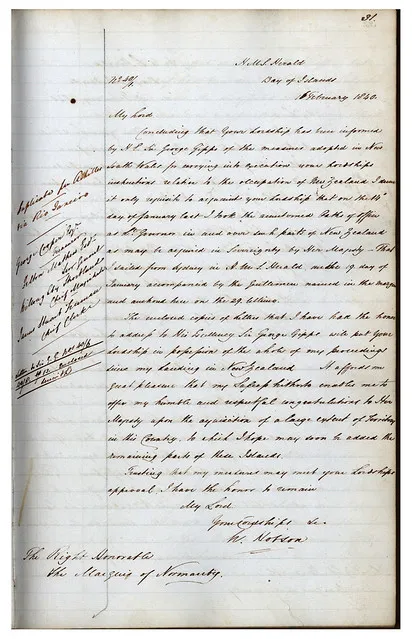 31.
H.M.S. Herald
Bay of Islands
February 1840.
No 40/1
My Lord
Concluding that Your Lordship has been informed
by H. E. Sir George Gipps of the measures adopted in New
South Wales for carrying into execution your Lordships
instructions relative to the occupation of New Zealand I deem
it only requisite to acquaint your Lordship that on the 14th
day of January last I took the accustomed Oaths of Office
as Lt Governor in and over such parts of New Zealand
as may be acquired in Sovereignty by Her Majesty - That
I sailed from Sydney in H.M.S. Herald on the 19 day of
January accompanied by the Gentlemen named in the margin
and anchored here on the 29 ultimo.
The enclosed copies of letters that I have had the honor
to address to His Excellency Sir George Gipps will put your
Lordship in possession of the whole of my proceedings
since my landing in New Zealand It affords me
great pleasure that my success hitherto enables me to
offer my humble and respectful congratulations to Her
Majesty upon the acquisition of a large extent of Territory
in this Country, to which I hope may soon be added the
remaining parts of these Islands.
Trusting that my measures may meet your Lordships
approval I have the honor to remain
My Lord
Your Lordships &c
W. Hobson
The Right Honorable
The Marquis of Normanby.
Duplicate for
via Rio Janeiro
George Cooper Esqr
Felton Mathew Esqr
Willoughby Shortland
James Stuart Freeman
Chief Clerk